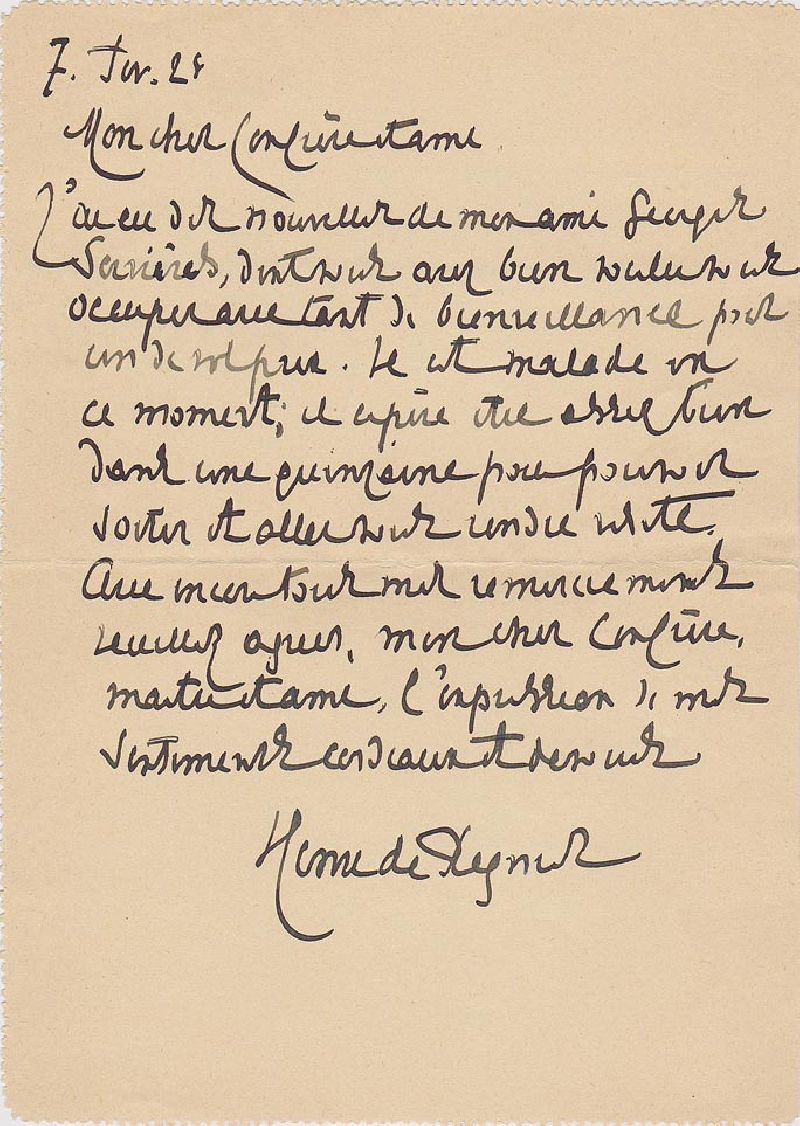 7. Fev. 28
Mon cher Confrère et ami
J'ai eu des nouvelles de mon ami Georges
Servières, dont vous avez bien voulu vous
occuper avec tant de bienveillance pour
un de vos prix. Il est malade en
ce moment; il espère être assez bien
dans une quinzaine pour pouvoir
sortir et aller vous rendre visite.
Avec encore tous mes remerciements
veuillez agréer, mon cher Confrère,
maître et ami, l'expression de mes
sentiments cordiaux et dévoués
Henri de Régnier